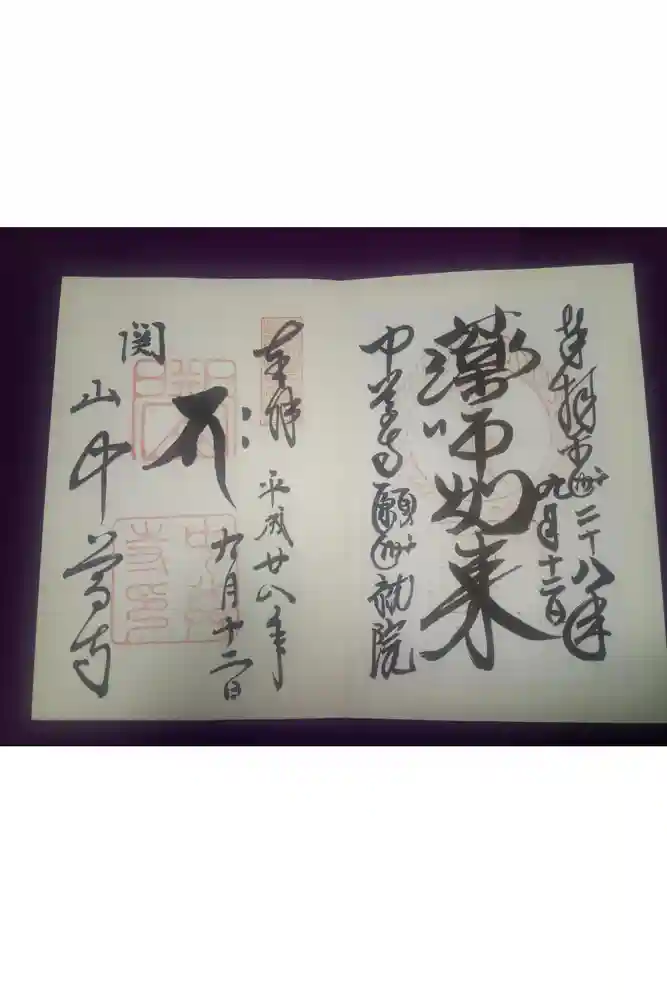 奉拝 平成二十八年
九月十二日
薬師如来
中尊寺願成就院
奉拝 平成廿八年
九月十二日
関
山中尊寺